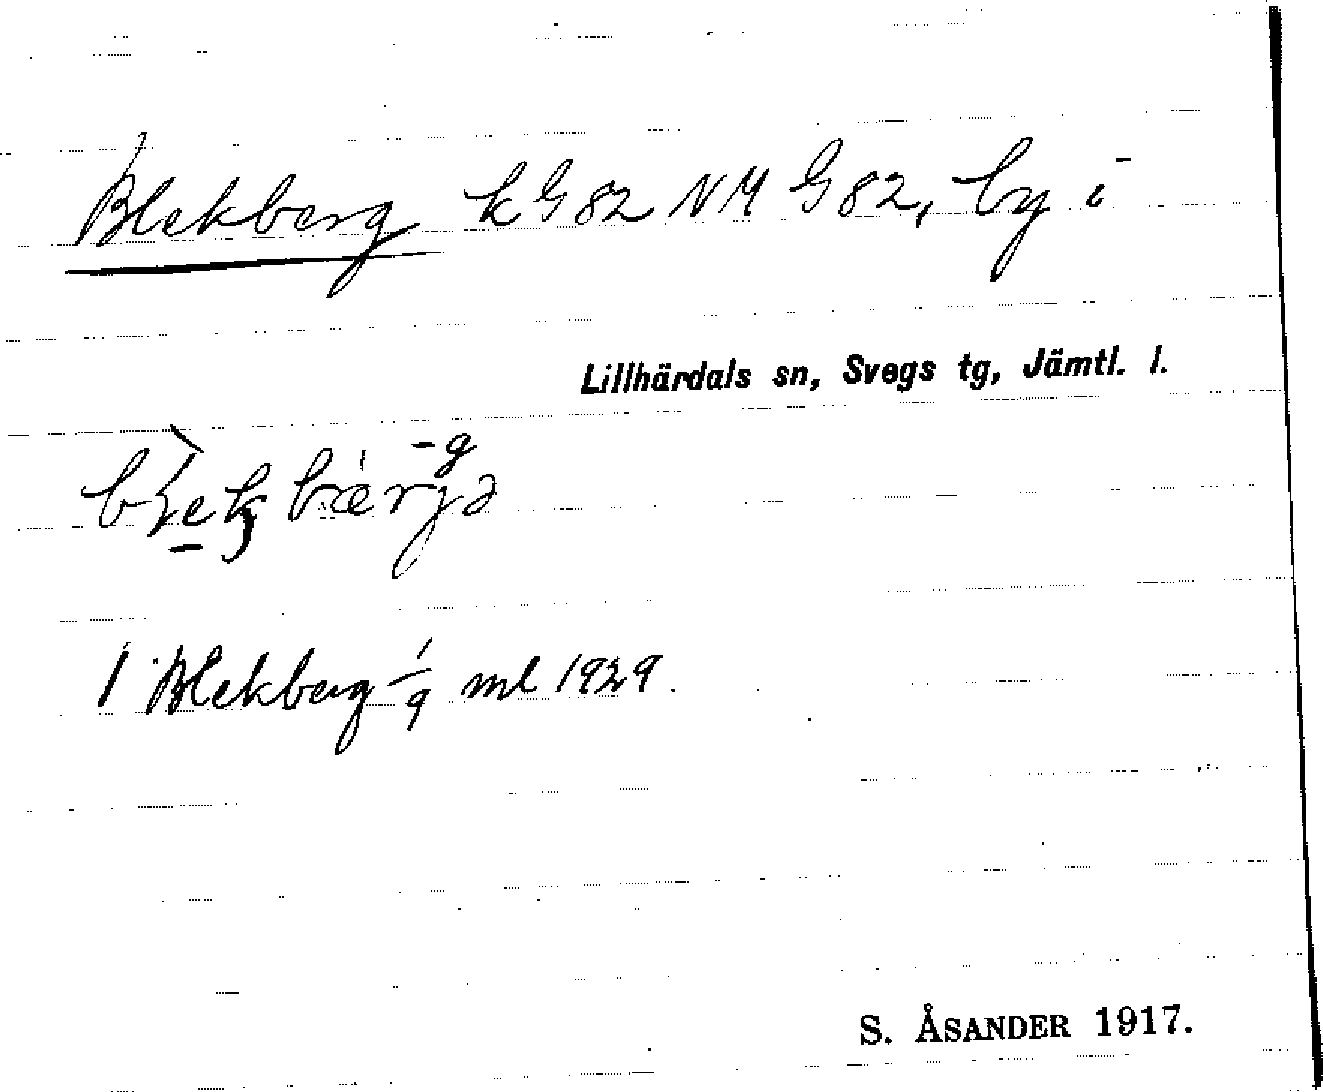 Blekberg kG82 NM G82, by i
Lillhärdals sn, Svegs tg, Jämtl. l.
-g
1 Blekberg 1/9 ml 1929.
S. ÅSANDER 1917.